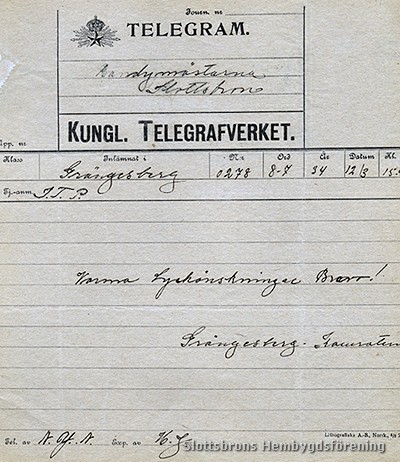 Journ. nr
TELEGRAM.
Bandymästarna
Slottsbron
KUNGL. TELEGRAFVERKET.
Klass Inlämnat i Nr Ord År Datum Kl.
Grängesberg 0278 8-7 34 12/3 15
Tj.-anm. I.T.P.
Varma Lyckönskningar Bravo!
Grängesberg. Kamraterna
Tel. av N. Exp. av H. Litografiska A.-B., Norrk.
Slottsbrons Hembygdsförening